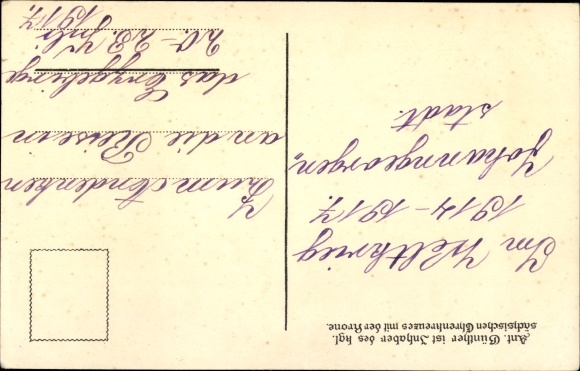 Ant. Günther ist Inhaber des kgl.
sächsischen Ehrenkreuzes mit der Krone.
Im Weltkrieg
1914-1917.
Johanngeorgen„
stadt.
Zum Andenken
an die Reise in
das Erzgebirg
20-23. Juli
1917.